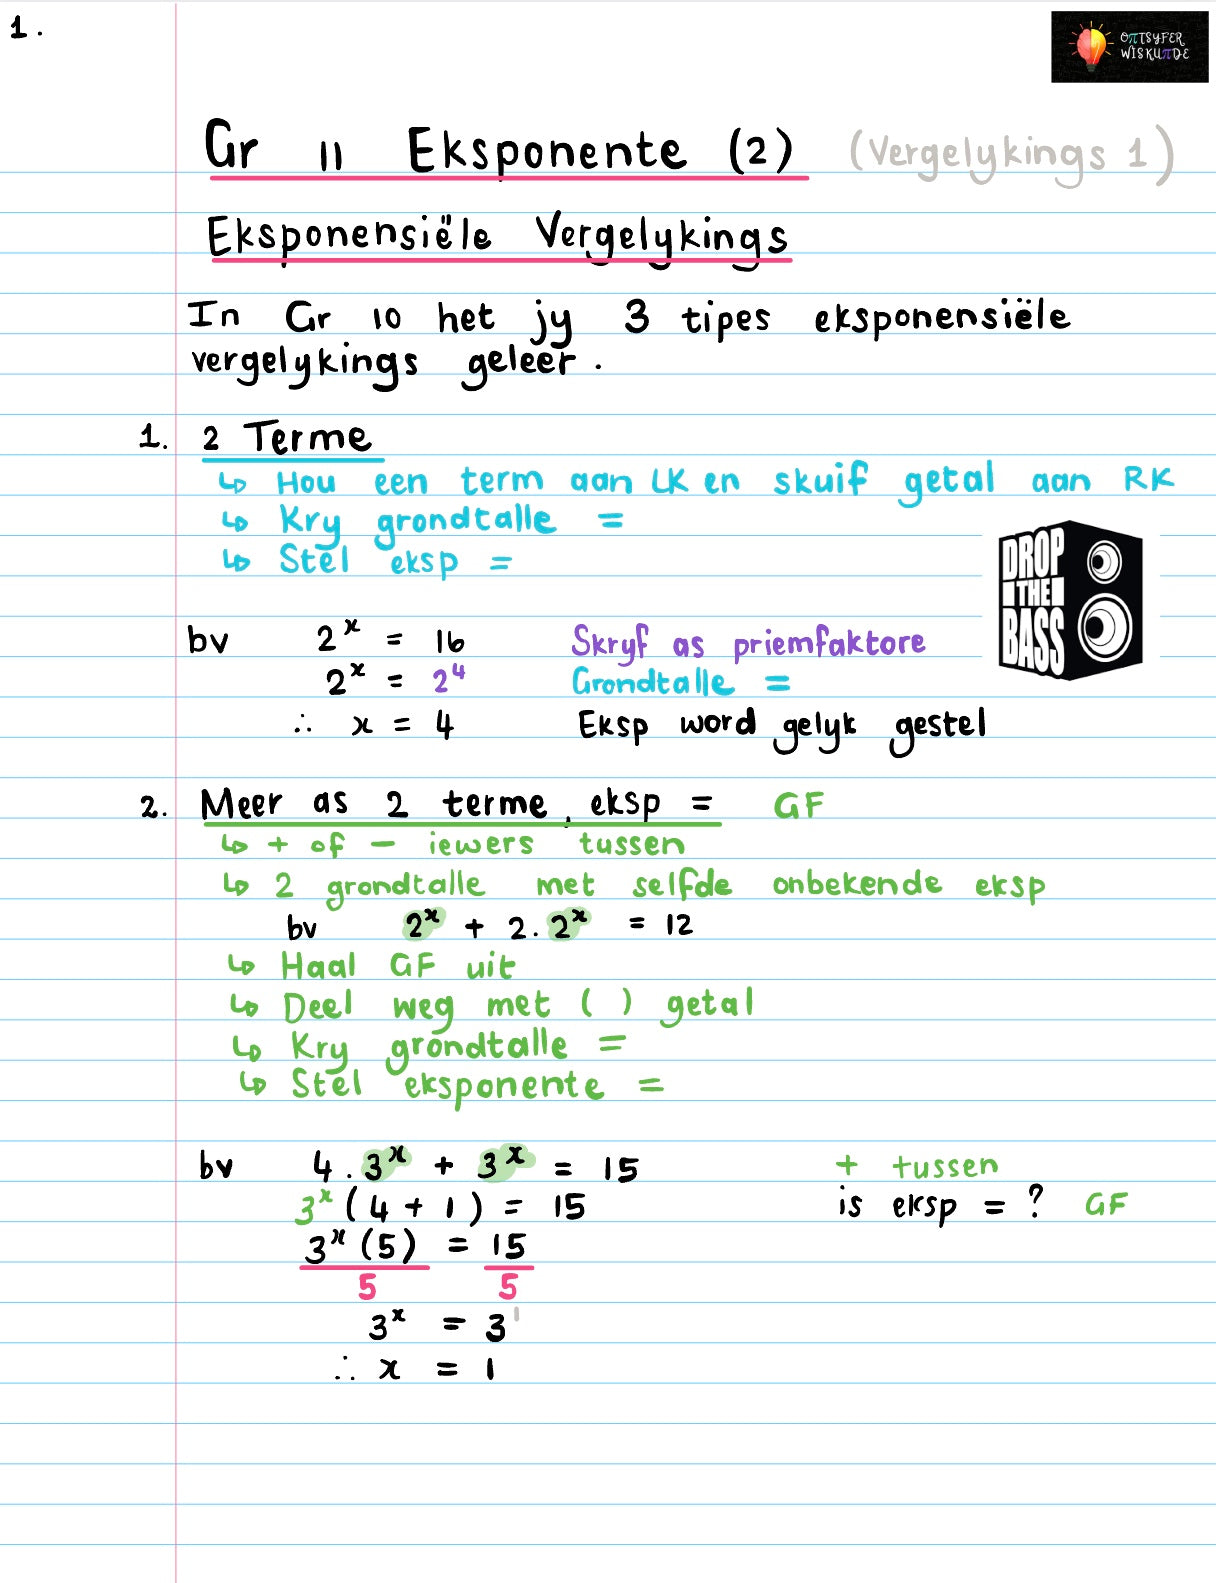 1.
OπTSYFER
WISKUπDE
Gr 11 Eksponente (2) (Vergelykings 1)
Eksponensiële Vergelykings
In Gr 10 het jy 3 tipes eksponensiële
vergelykings geleer.
1. 2 Terme
↳ Hou een term aan LK en skuif getal aan RK
↳ Kry grondtalle =
↳ Stel eksp =
DROP
THE
BASS
bv 2^x = 16 Skryf as priemfaktore
2^x = 2^4 Grondtalle =
∴ x = 4 Eksp word gelyk gestel
2. Meer as 2 terme, eksp = GF
↳ + of − iewers tussen
↳ 2 grondtalle met selfde onbekende eksp
bv 2^x + 2.2^x = 12
↳ Haal GF uit
↳ Deel weg met ( ) getal
↳ Kry grondtalle =
↳ Stel eksponente =
bv 4.3^x + 3^x = 15 + tussen
3^x (4 + 1) = 15 is eksp = ? GF
3^x (5) = 15
5 5
3^x = 3^1
∴ x = 1